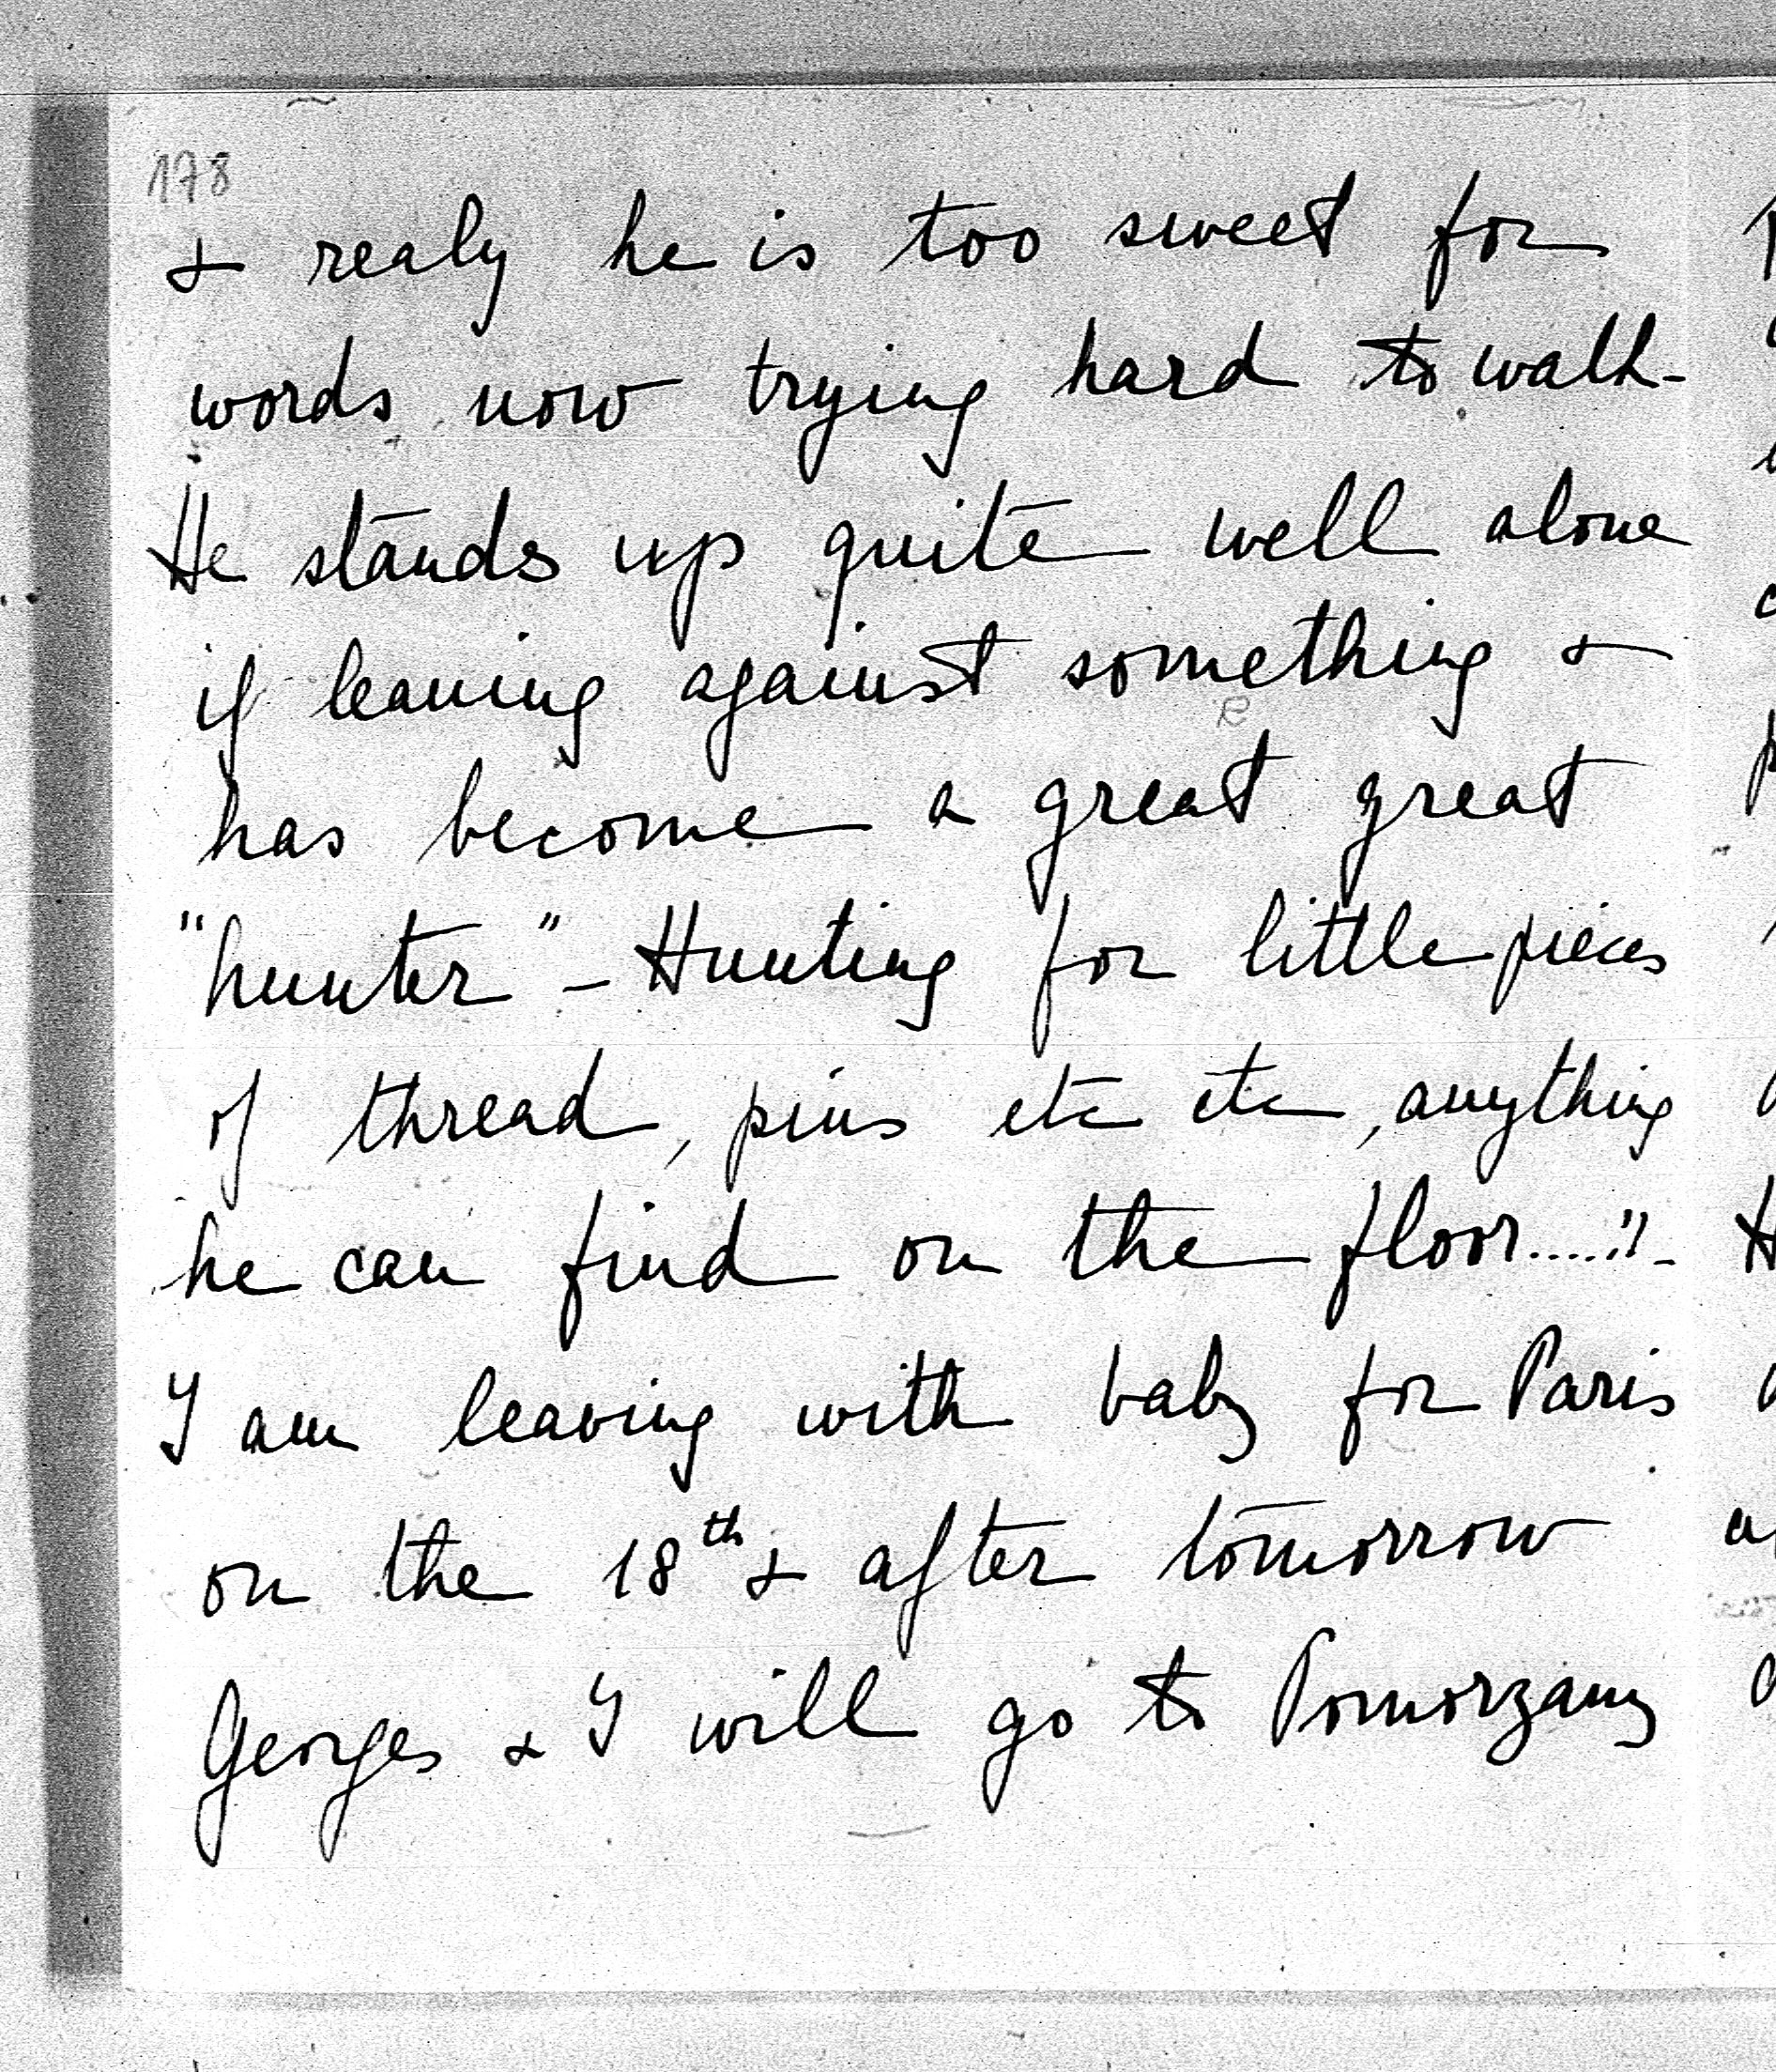 178
& realy he is too sweet for
words now trying hard to walk -
He stands up quite well alone
if leaning against something &
has become a great great
"hunter" - Hunting for little pieces
of thread, pins etc etc, anything
he can find on the floor....." -
I am leaving with baby for Paris
on the 18th & after tomorrow
Georges & I will go to Pomorzany